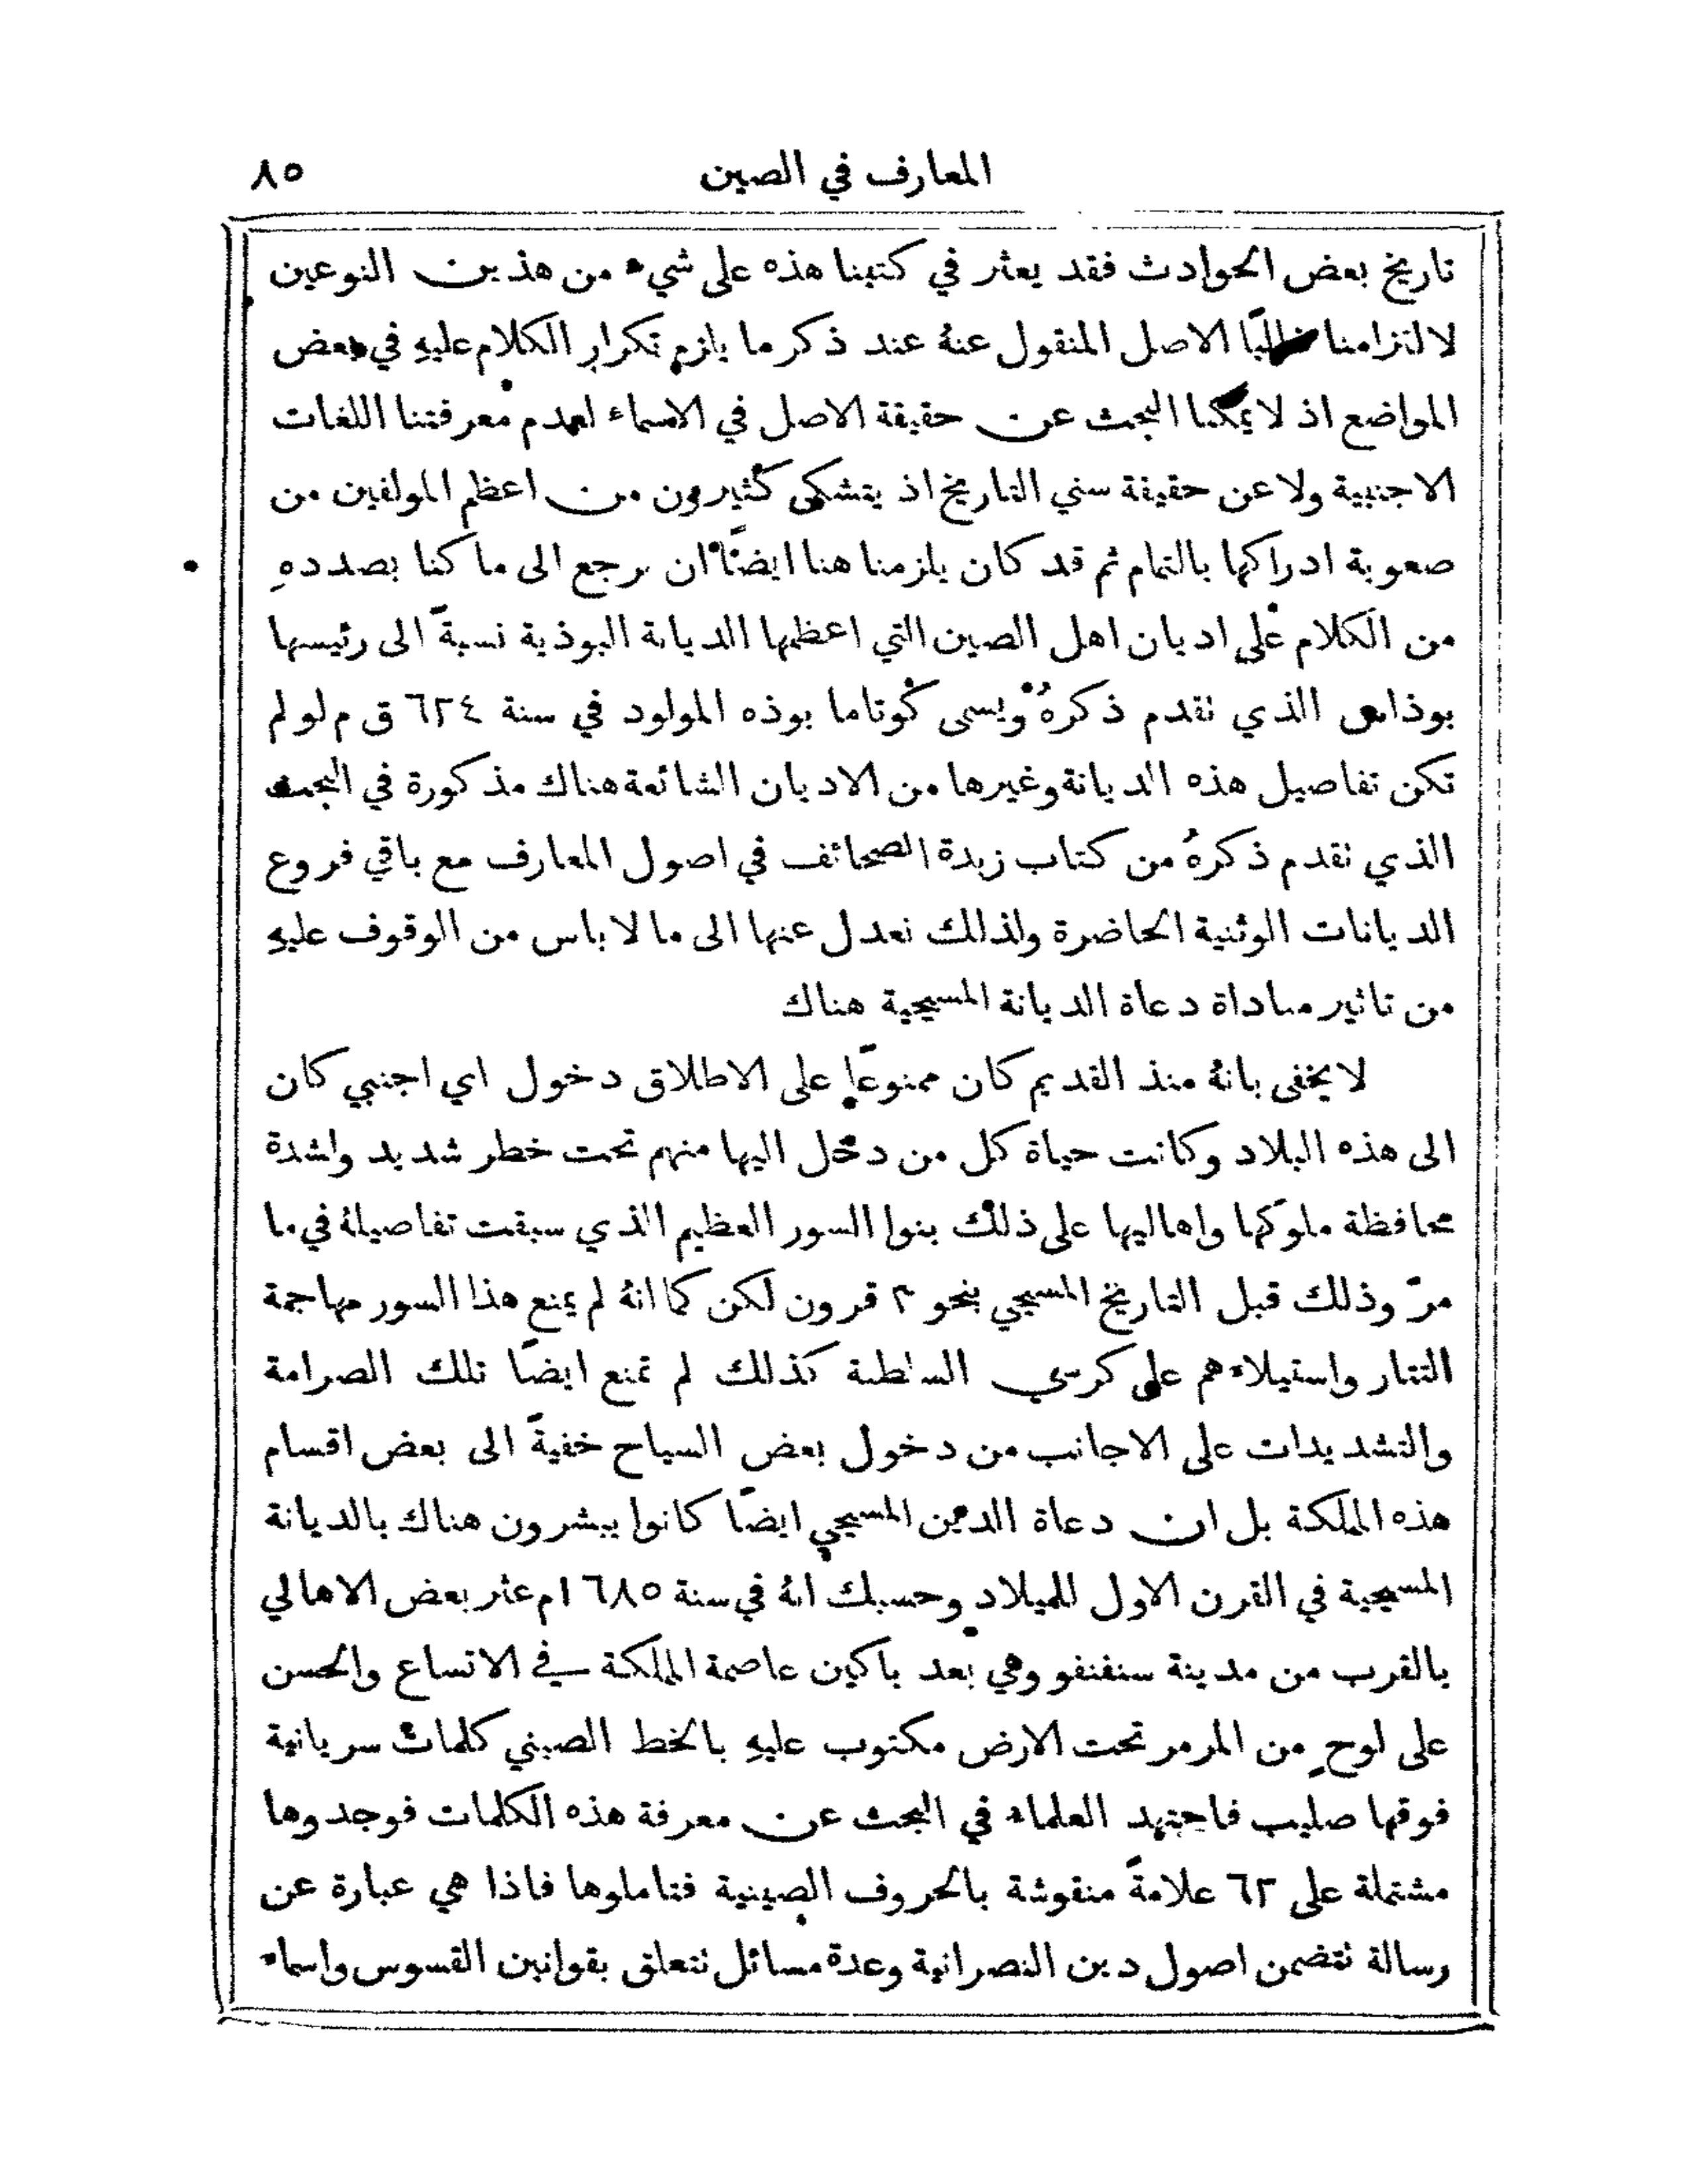 المعارف في الصين ٨٥
تاريخ بعض الحوادث فقد يعثر في كتبنا هذه على شيء من هذين النوعين
لالتزامنا غالبًا الاصل المنقول عنهُ عند ذكر ما يلزم تكرار الكلام عليهِ في بعض
المواضع اذ لا يمكنا البحث عن حقيقة الاصل في الاسماء لعدم معرفتنا اللغات
الاجنبية ولا عن حقيقة سني التاريخ اذ يتشكى كثيرون من اعظم المولفين من
صعوبة ادراكها بالتمام ثم قد كان يلزمنا هنا ايضًا ان نرجع الى ما كنا بصددهِ
من الكلام على اديان اهل الصين التي اعظمها الديانة البوذية نسبةً الى رئيسها
بوذاس الذي تقدم ذكرهُ ويسمى كُوتاما بوذه المولود في سنة ٦٢٤ ق م لو لم
تكن تفاصيل هذه الديانة وغيرها من الاديان الشائعة هناك مذكورة في البحث
الذي تقدم ذكرهُ من كتاب زبدة الصحائف في اصول المعارف مع باقي فروع
الديانات الوثنية الحاضرة ولذلك نعدل عنها الى ما لا باس من الوقوف عليهِ
من تاثير مناداة دعاة الديانة المسيحية هناك
لا يخفى بانهُ منذ القديم كان ممنوعًا على الاطلاق دخول اي اجنبي كان
الى هذه البلاد وكانت حياة كل من دخل اليها منهم تحت خطر شديد ولشدة
محافظة ملوكها واهاليها على ذلك بنوا السور العظيم الذي سبقت تفاصيلهُ في ما
مرّ وذلك قبل التاريخ المسيحي بنحو ٣ قرون لكن كما انهُ لم يمنع هذا السور مهاجمة
التتار واستيلاءهم على كرسي السلطنة كذلك لم تمنع ايضًا تلك الصرامة
والتشديدات على الاجانب من دخول بعض السياح خفيةً الى بعض اقسام
هذه المملكة بل ان دعاة الدين المسيحي ايضًا كانوا يبشرون هناك بالديانة
المسيحية في القرن الاول للميلاد وحسبك انهُ في سنة ١٦٨٥م عثر بعض الاهالي
بالقرب من مدينة سنفنفو وهي بعد باكين عاصمة المملكة في الاتساع والحسن
على لوحٍ من المرمر تحت الارض مكتوب عليهِ بالخط الصيني كلمات سريانية
فوقها صليب فاجتهد العلماء في البحث عن معرفة هذه الكلمات فوجدوها
مشتملة على ٦٢ علامةً منقوشة بالحروف الصينية فتاملوها فاذا هي عبارة عن
رسالة تتضمن اصول دين النصرانية وعدة مسائل تتعلق بقوانين القسوس واسماء